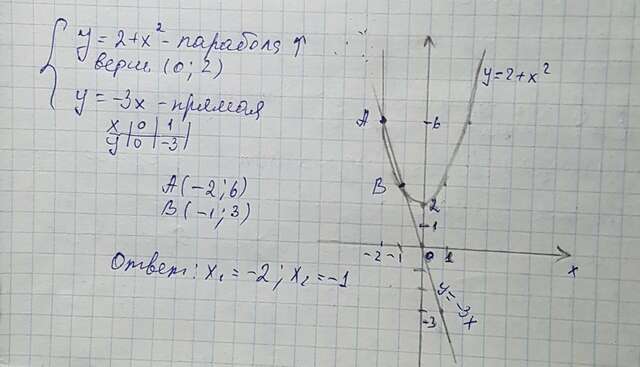 y = 2+x² - парабола ↑
верш (0; 2)
y = -3x - прямая
x | 0 | 1 |
y | 0 | -3 |
A (-2; 6)
B (-1; 3)
Ответ: x₁ = -2; x₂ = -1
y = 2+x²
A
6
B
2
1
-2 -1 0 1
x
y = -3x
-3